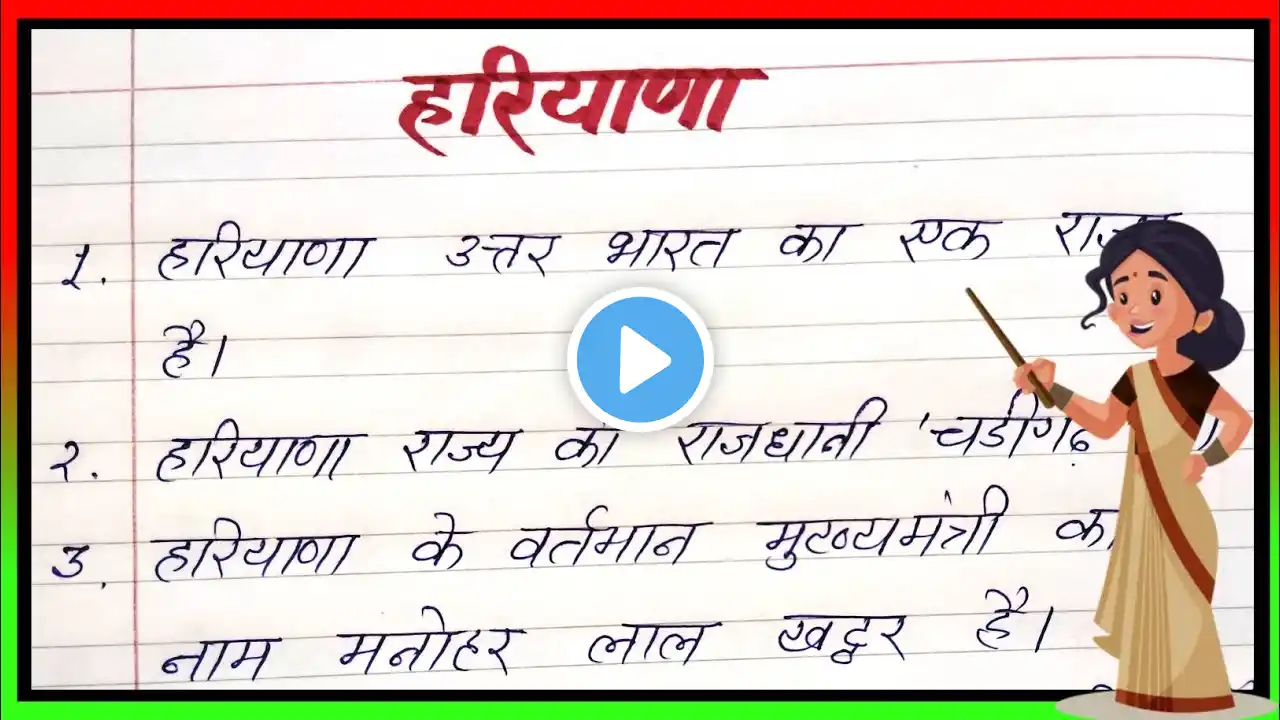 हरियाणा
1. हरियाणा उत्तर भारत का एक
है।
२. हरियाणा राज्य की राजधानी 'चडीगढ़
3. हरियाणा के वर्तमान मुख्यमंत्री का
नाम मनोहर लाल खट्टर है।